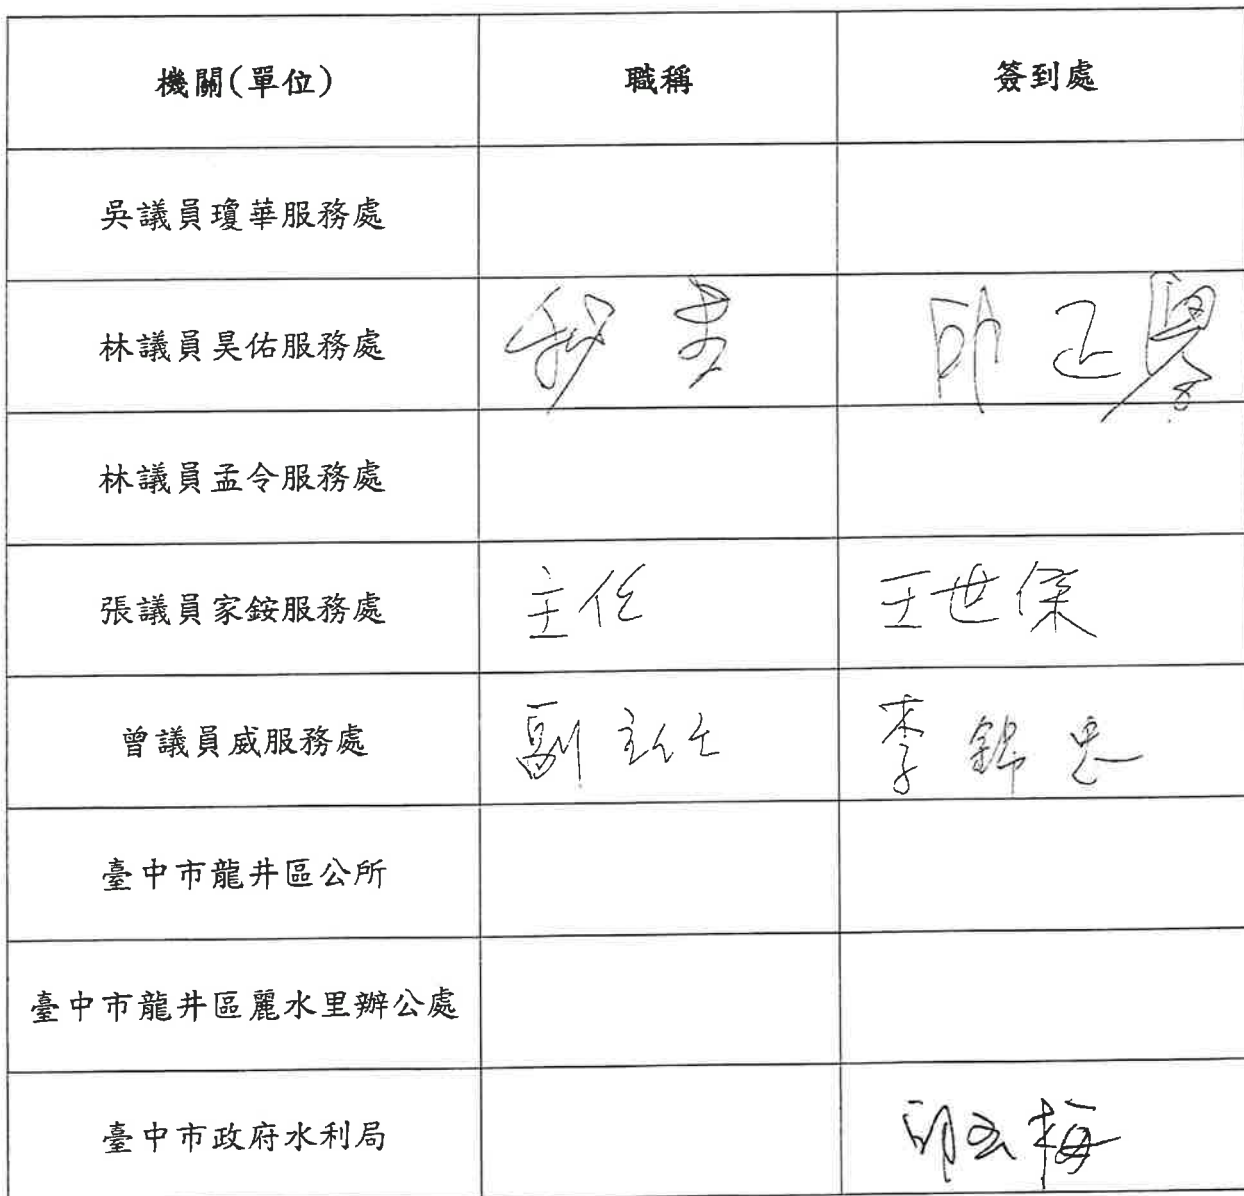 機關(單位) 職稱 簽到處
吳議員瓊華服務處
林議員昊佑服務處 秘書
林議員孟令服務處
張議員家銨服務處 主任 王世傑
曾議員威服務處 副主任 李錦忠
臺中市龍井區公所
臺中市龍井區麗水里辦公處
臺中市政府水利局